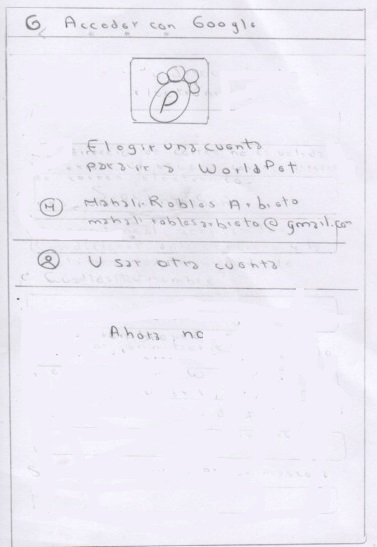 G Acceder con Google
P
Elegir una cuenta
para ir a WorldPet
M Mahali Robles Arbieto
mahali.roblesarbieto@gmail.com
Usar otra cuenta
Ahora no